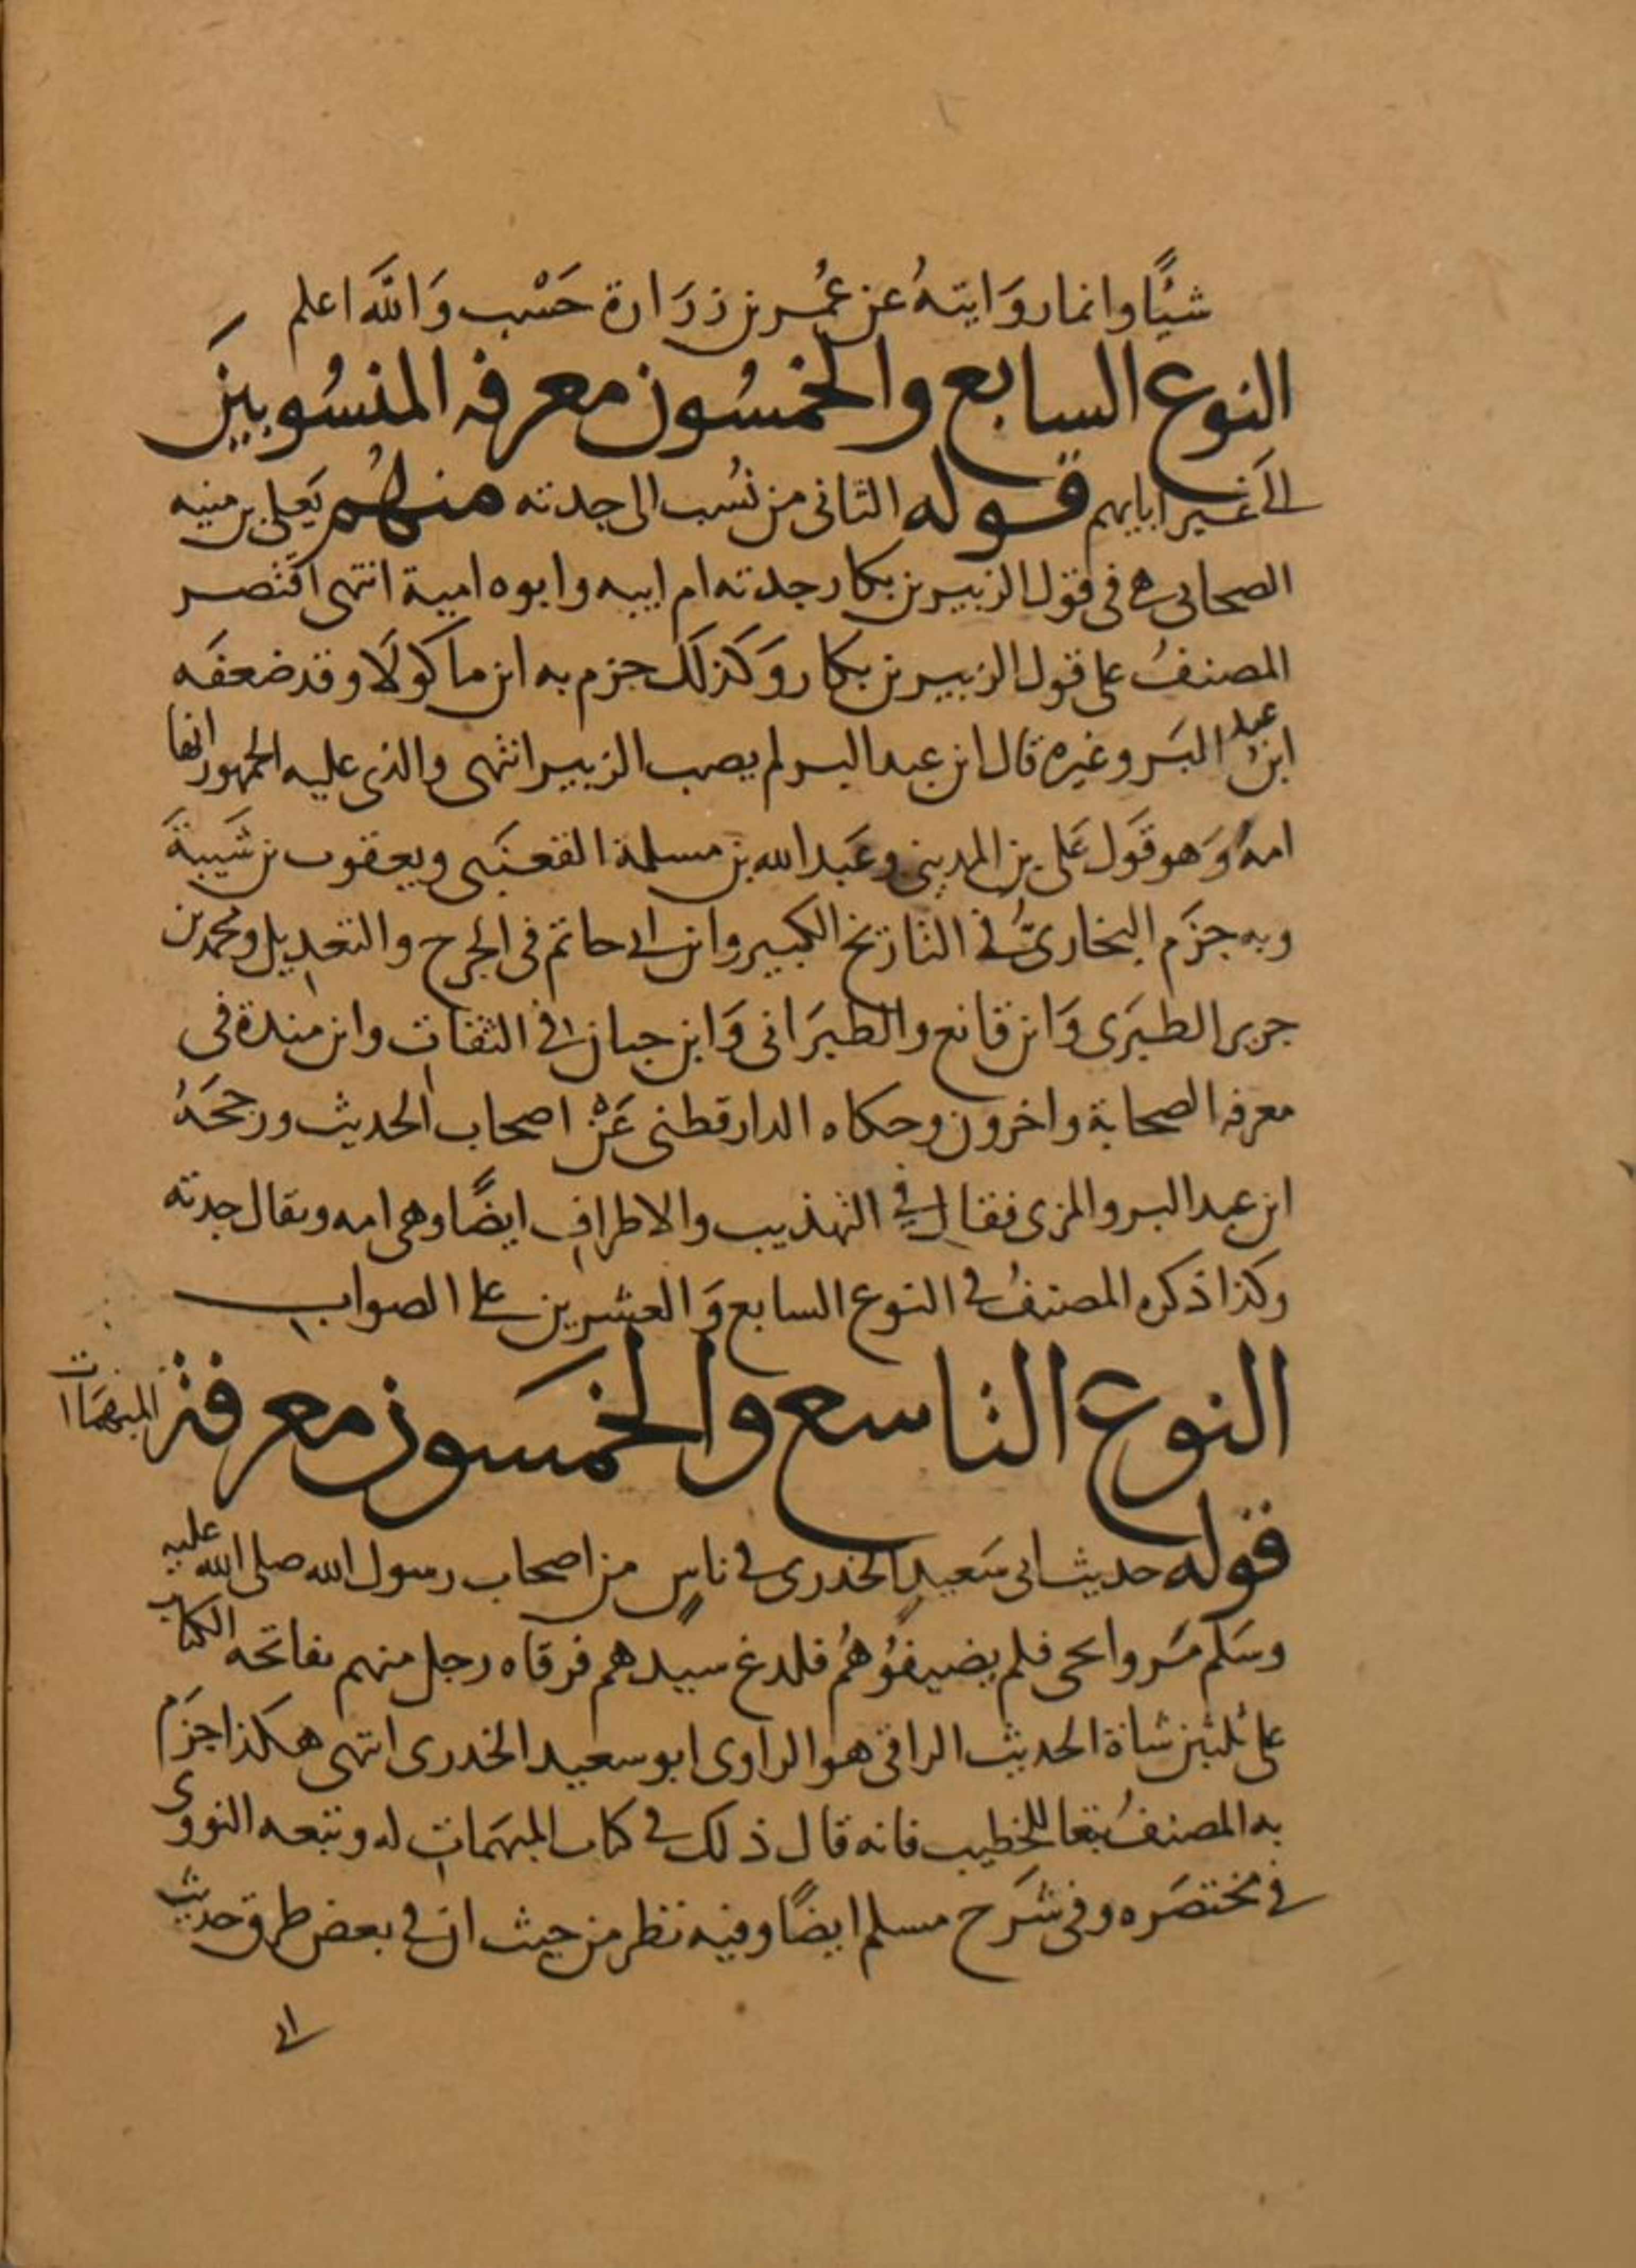 شيًا وانما روَايتهُ عن عمُر بن زرَارة حَسْب وَاللَّه اعلم
النوع السابع والخمسُون معرفه المنسُوبينَ
الى غير ابايهم قوله الثانى من نُسب الى جدته منهُم يَعلى بن منيه
الصحابى هى فى قول الزبير بن بكار جدته ام ابيه وابوه امية انتهى اقتصر
المصنفُ على قول الزبير بن بكار وَكذلكَ جزم به ابن ماكولَا وقد ضعفَه
ابن عبد البَر وغيره قال ابن عبد البر لم يصب الزبير انتهى والذى عليه الجمهور انها
امهُ وَهو قَول عَلى بن المدينى وعَبد الله بن مسلمة القعنَبى ويعقوب بن شَيبةَ
وبه جزَم البخارىُّ فى التاريخ الكبير وابن ابى حاتم فى الجرح والتعديل ومحمد بن
جرير الطبَرى وَابن قانع والطبَرَانى وَابن حبان فى الثقات وابن مندة فى
معرفه الصحابة واخرون وحكاه الدارقطنى عَنْ اصحاب الحديث ورجحَهُ
ابن عبد البر والمزى فقال فى التهذيب والاطراف ايضًا وهى امه ويقال جدته
وكذا ذكره المصنفُ فى النوع السابع وَالعشرين على الصواب
النوع التاسع والخمَسون معرفة المبهمَات
قوله حديث ابى سَعيدٍ الخدرى فى ناسٍ من اصحاب رسول الله صلى الله عليه
وسَلم مَروا بحى فلم يضيفُوُهُم فلدغ سيدهم فرقاه رجل منهم بفاتحه الكتاب
على ثلثين شاة الحديث الراقى هو الراوى ابو سعيد الخدرى انتهى هكذا جزَم
به المصنفُ تبعا للخطيب فانه قال ذلك فى كتاب المبهمَات له وتبعه النووى
فى مختصَره وفى شَرح مسلم ايضًا وفيه نظر من حيث ان فى بعض طرق حديث